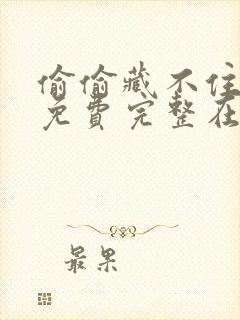 偷偷藏不住
免费完整在
最果